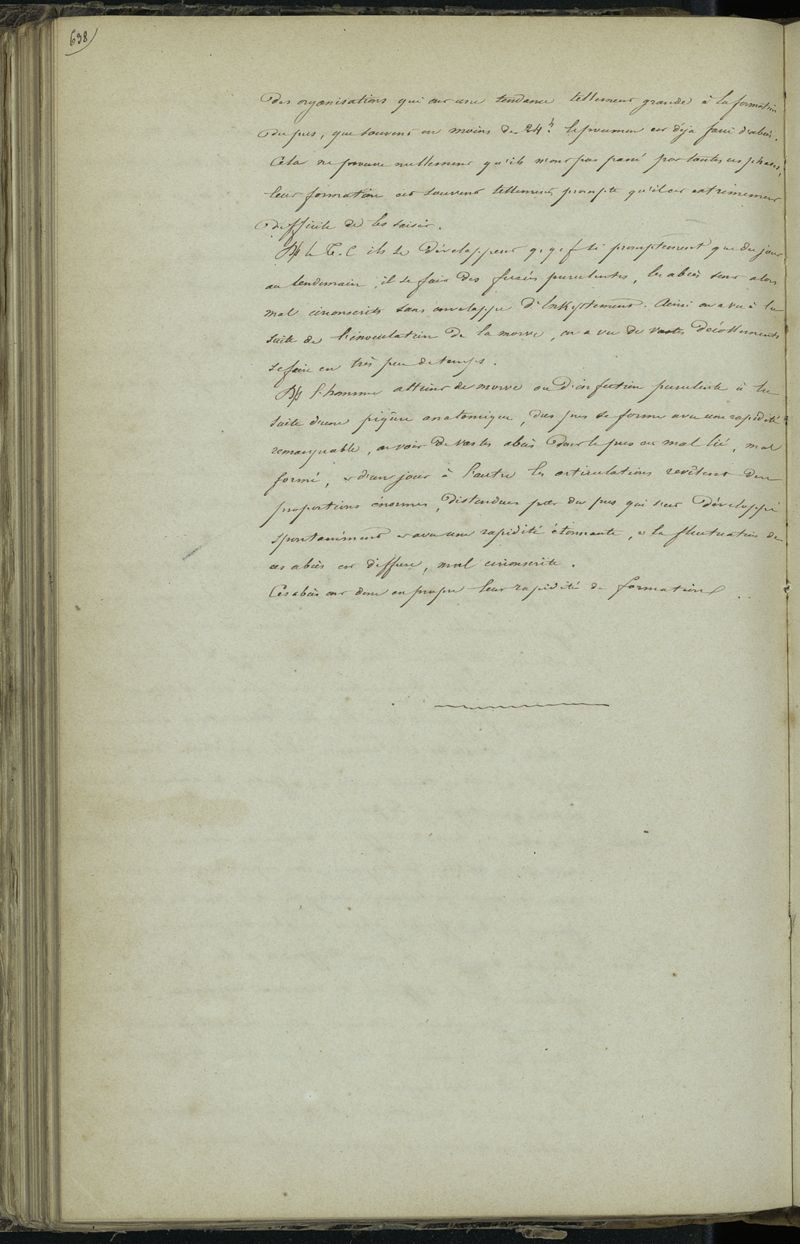 698
des organisations qui ont une tendance tellement grande à la formation
du pus, que souvent en moins de 24 h. le poumon est déja farci d'abcès.
Cela ne prouve nullement qu'ils n'ont pas passé par toutes ces phases,
leur formation est souvent tellement prompte qu'il est extrêmement
difficile de les saisir.
le T. C ils se développent qqf si promptement que du jour
au lendemain, il se fait des fusées purulentes, les abcès sont alors
mal circonscrits sans enveloppe d'Enkystement. Ainsi on a vu à la
suite de l'inoculation de la morve, on a vu de vastes décollements
se faire en très peu de temps.
l'homme atteint de morve ou d'infection purulente à la
suite d'une piqûre anatomique, du pus se forme avec une rapidité
remarquable, on voit de vastes abcès dont le pus est mal lié, mal
formé, et d'un jour à l'autre les articulations revêtent des
proportions énormes, distendues par du pus qui s'est développé
spontanément et avec une rapidité étonnante, et la fluctuation de
ces abcès est diffuse, mal circonscrite.
Ces abcès ont donc en propre leur rapidité de formation